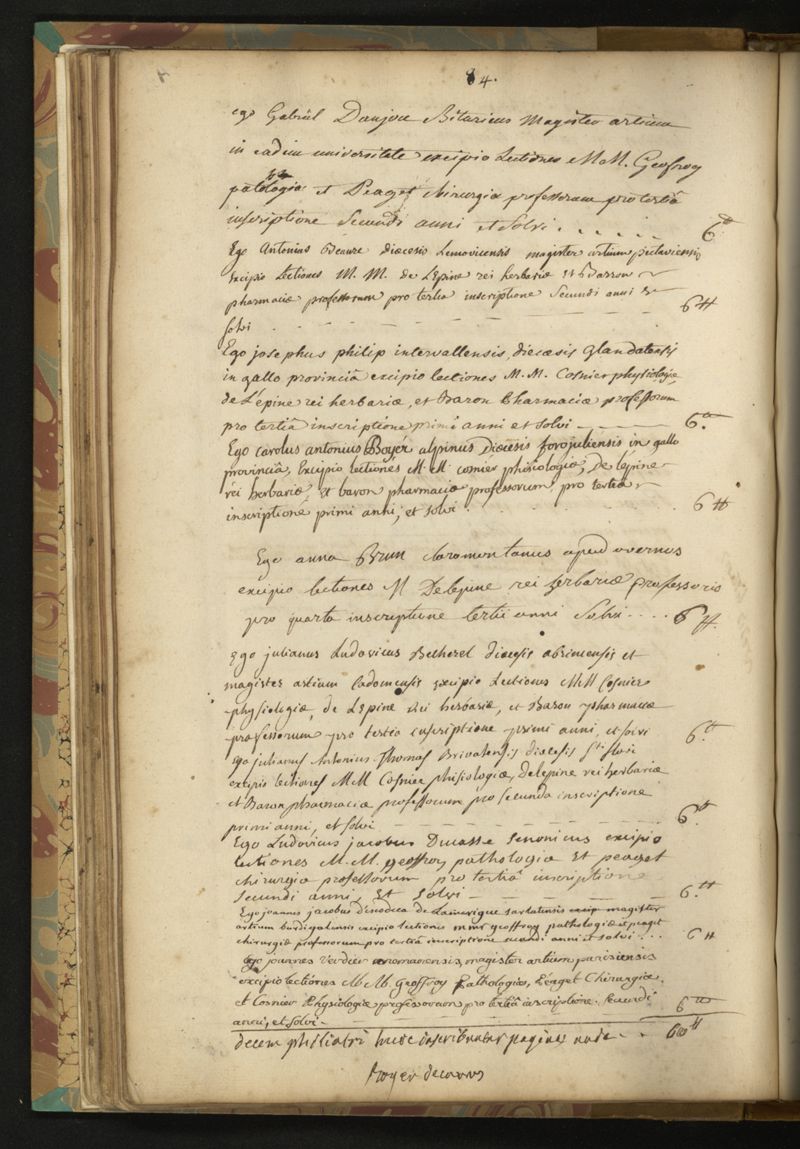 84.
ego Gabriel Danjou Bituricus magister artium
in eadem universitate excipio Lectiones M.M. Geofroy
pathologiæ et Peaget chirurgiæ professorum pro tertiâ
inscriptione secundi anni et solvi . . . . . . 6ᵗᵗ
Ego Antonius diœcesis Lemovicensis magister artium pictaviensis
excipio Lectiones M. M. de L'Epine rei herbariæ et Barron
pharmaciæ professorum pro tertia inscriptione secundi anni et
solvi . 6 ᵗᵗ
Ego josephus philip intervallensis, diœcesis glandatensis
in gallo provinciâ excipio lectiones M. M. Cosnier physiologiæ,
de L'épine rei herbariæ, et Baron pharmaciæ professorum
pro tertiâ inscriptione primi anni et solvi 6.ᵗᵗ
Ego carolus antonius Boyér alpinus diœcesis forojuliensis in gallo
provinciâ, Excipio lectiones M. M. cosnier phisiologiæ, De lépine
rei herbariæ, Et baron pharmaciæ professorum, pro tertiâ
inscriptione primi anni, et solvi . 6 ᵗᵗ
Ego anna Brun claromontanus apud overnos
excipio lectiones M Delepine rei herbariæ professoris
pro quarta inscriptione tertii anni solvi . . . . 6 ᵗᵗ.
Ego julianus Ludovicus Betherel diœcesis abrincensis et
magister artium Cadomensis excipio Lectiones MM Cosnier
physiologiæ, de LEpine Rei herbariæ, et Baron pharmaciæ
professorum pro tertia inscriptione primi anni, et solvi 6.ᵗᵗ
Ego julianus Antonius Thomas Brivatensis diœcesis Sti flori
excipio lectiones MM Cosnier phisiologiæ, delepine rei herbariæ
et Baron pharmaciæ professorum pro secunda inscriptione
primi anni, et solvi 6.ᵗᵗ
Ego Ludovicus jacobus Ducasse Senonicus excipio
lectiones M. M. geoffroy pathologiæ Et peaget
chirurgiæ professorum pro tertiâ inscriptione
secundi anni, Et solvi 6.ᵗᵗ
Ego joannes jacobus de sarlatensis excip magister
artium burdigalensis excipio lectiones geoffroy pathologiæ et peaget
chirurgiæ professorum pro tertiâ inscriptione secundi anni et solvi . . . 6 ᵗᵗ
Ego joannes Verdier magister artium parisiensis
excipio lectiones M. M. Geoffroy Pathologiæ, Péaget Chirurgiæ,
et Cosnier Physiologiæ professorum pro tertiâ inscriptione secundi
anni, et solvi. 6 ᵗᵗ
decem philiatri huic inscribuntur paginæ unde . . 60ᵗᵗ
Boyer decanus